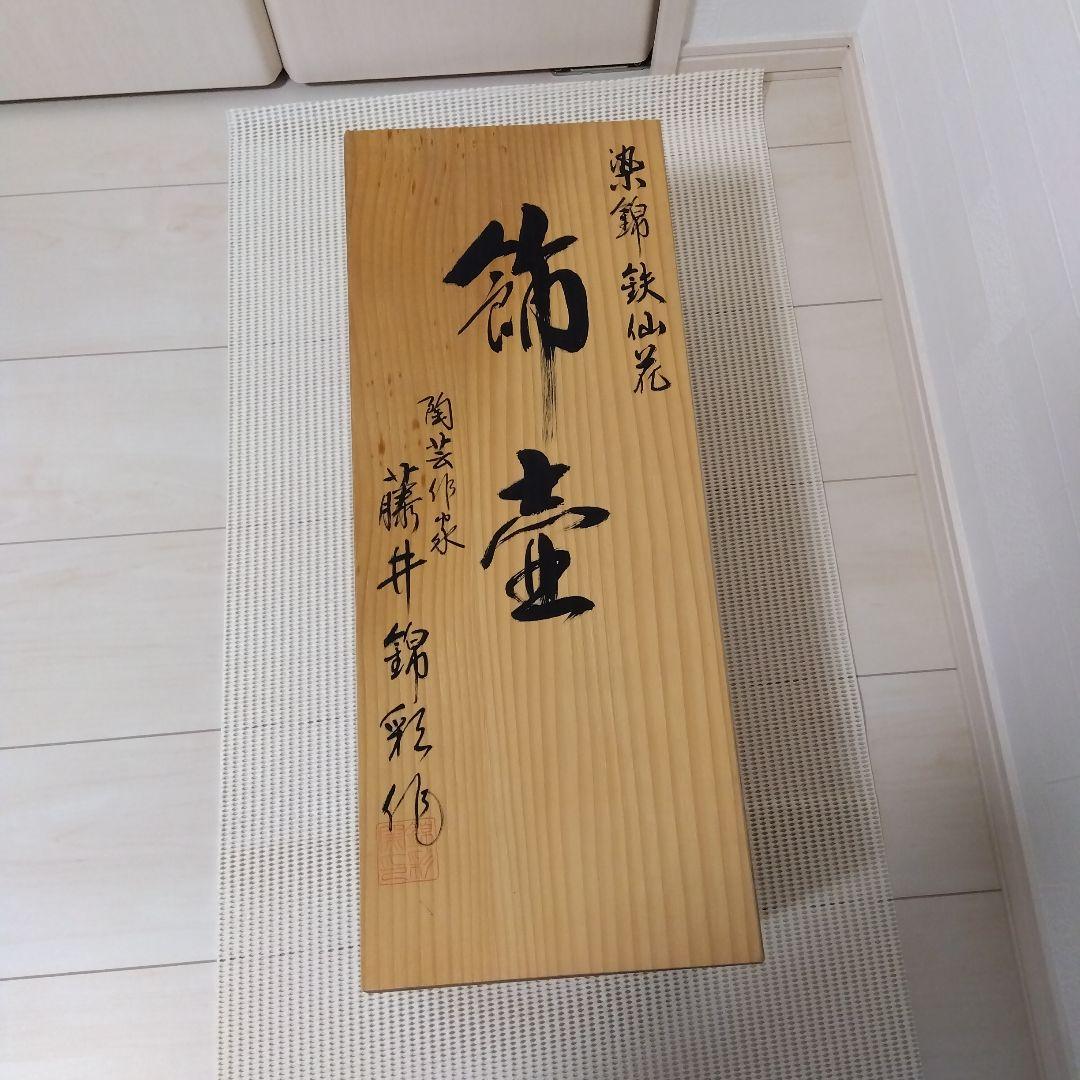 染錦 鉄仙花
飾壷
陶芸作家
藤井錦彩作